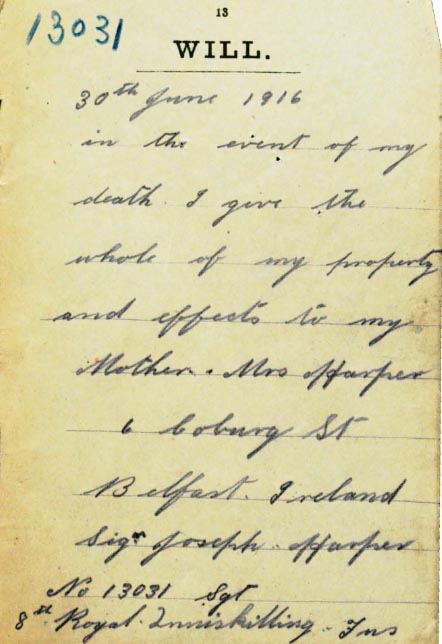 13
13031
WILL.
30th June 1916
in the event of my
death I give the
whole of my property
and effects to my
Mother. Mrs Harper
6 Coburg St
Belfast. Ireland
Sigr Joseph. Harper
No 13031 Sgt
8th Royal Inniskilling. Fus